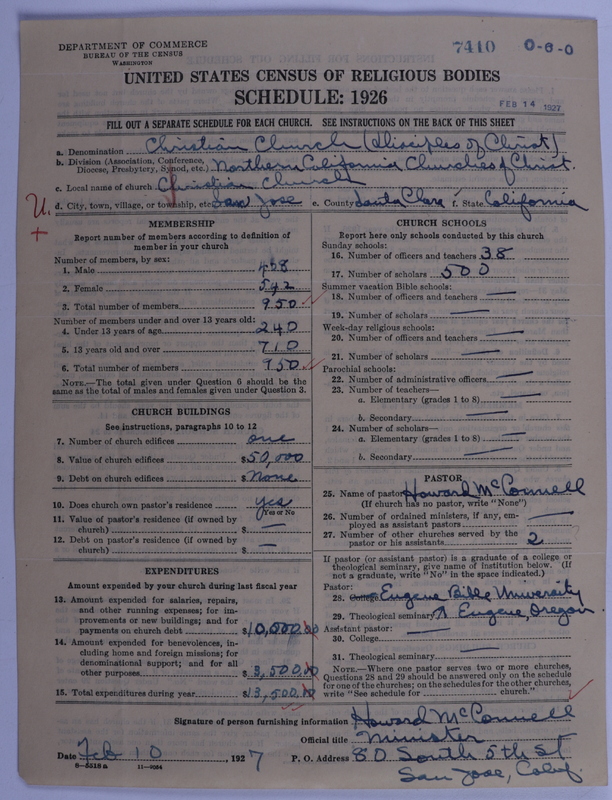 DEPARTMENT OF COMMERCE
BUREAU OF THE CENSUS
WASHINGTON
7410 0-6-0
UNITED STATES CENSUS OF RELIGIOUS BODIES
SCHEDULE: 1926
FEB 14 1927
FILL OUT A SEPARATE SCHEDULE FOR EACH CHURCH. SEE INSTRUCTIONS ON THE BACK OF THIS SHEET
a. Denomination Christian Church (Disciples of Christ)
b. Division (Association, Conference, Diocese, Presbytery, Synod, etc.) Northern California Churches of Christ.
c. Local name of church Christian Church
d. City, town, village, or township, etc. San Jose e. County Santa Clara f. State California
U.
+
MEMBERSHIP
Report number of members according to definition of
member in your church
Number of members, by sex:
1. Male 408
2. Female 542
3. Total number of members 950
Number of members under and over 13 years old:
4. Under 13 years of age 240
5. 13 years old and over 710
6. Total number of members 950
NOTE.—The total given under Question 6 should be
same as the total of males and females given under Question 3.
CHURCH BUILDINGS
See instructions, paragraphs 10 to 12
7. Number of church edifices one
8. Value of church edifices $50,000
9. Debt on church edifices $None
10. Does church own pastor's residence yes
Yes or No
11. Value of pastor's residence (if owned by
church) $ —
12. Debt on pastor's residence (if owned by
church) $ —
EXPENDITURES
Amount expended by your church during last fiscal year
13. Amount expended for salaries, repairs,
and other running expenses; for im-
provements or new buildings; and for
payments on church debt $10,000.00
14. Amount expended for benevolences, in-
cluding home and foreign missions; for
denominational support; and for all
other purposes $3,500.00
15. Total expenditures during year $13,500.00
CHURCH SCHOOLS
Report here only schools conducted by this church
Sunday schools:
16. Number of officers and teachers 38
17. Number of scholars 500
Summer vacation Bible schools:
18. Number of officers and teachers —
19. Number of scholars —
Week-day religious schools:
20. Number of officers and teachers —
21. Number of scholars —
Parochial schools:
22. Number of administrative officers —
23. Number of teachers—
a. Elementary (grades 1 to 8) —
b. Secondary —
24. Number of scholars—
a. Elementary (grades 1 to 8) —
b. Secondary —
PASTOR
25. Name of pastor Howard McConnell
(If church has no pastor, write "None")
26. Number of ordained ministers, if any, em-
ployed as assistant pastors —
27. Number of other churches served by the
pastor or his assistants 2
If pastor (or assistant pastor) is a graduate of a college or
theological seminary, give name of institution below. (If
not a graduate, write "No" in the space indicated.)
Pastor:
28. College Eugene Bible University
29. Theological seminary Eugene, Oregon.
Assistant pastor:
30. College —
31. Theological seminary —
NOTE.—Where one pastor serves two or more churches,
Questions 28 and 29 should be answered only on the schedule
for one of the churches; on the schedules for the other churches,
write "See schedule for church."
Signature of person furnishing information Howard McConnell
Official title Minister
Date Feb 10, 1927 P. O. Address 80 South 5th St
8—5518a 11—9054
San Jose, Calif.